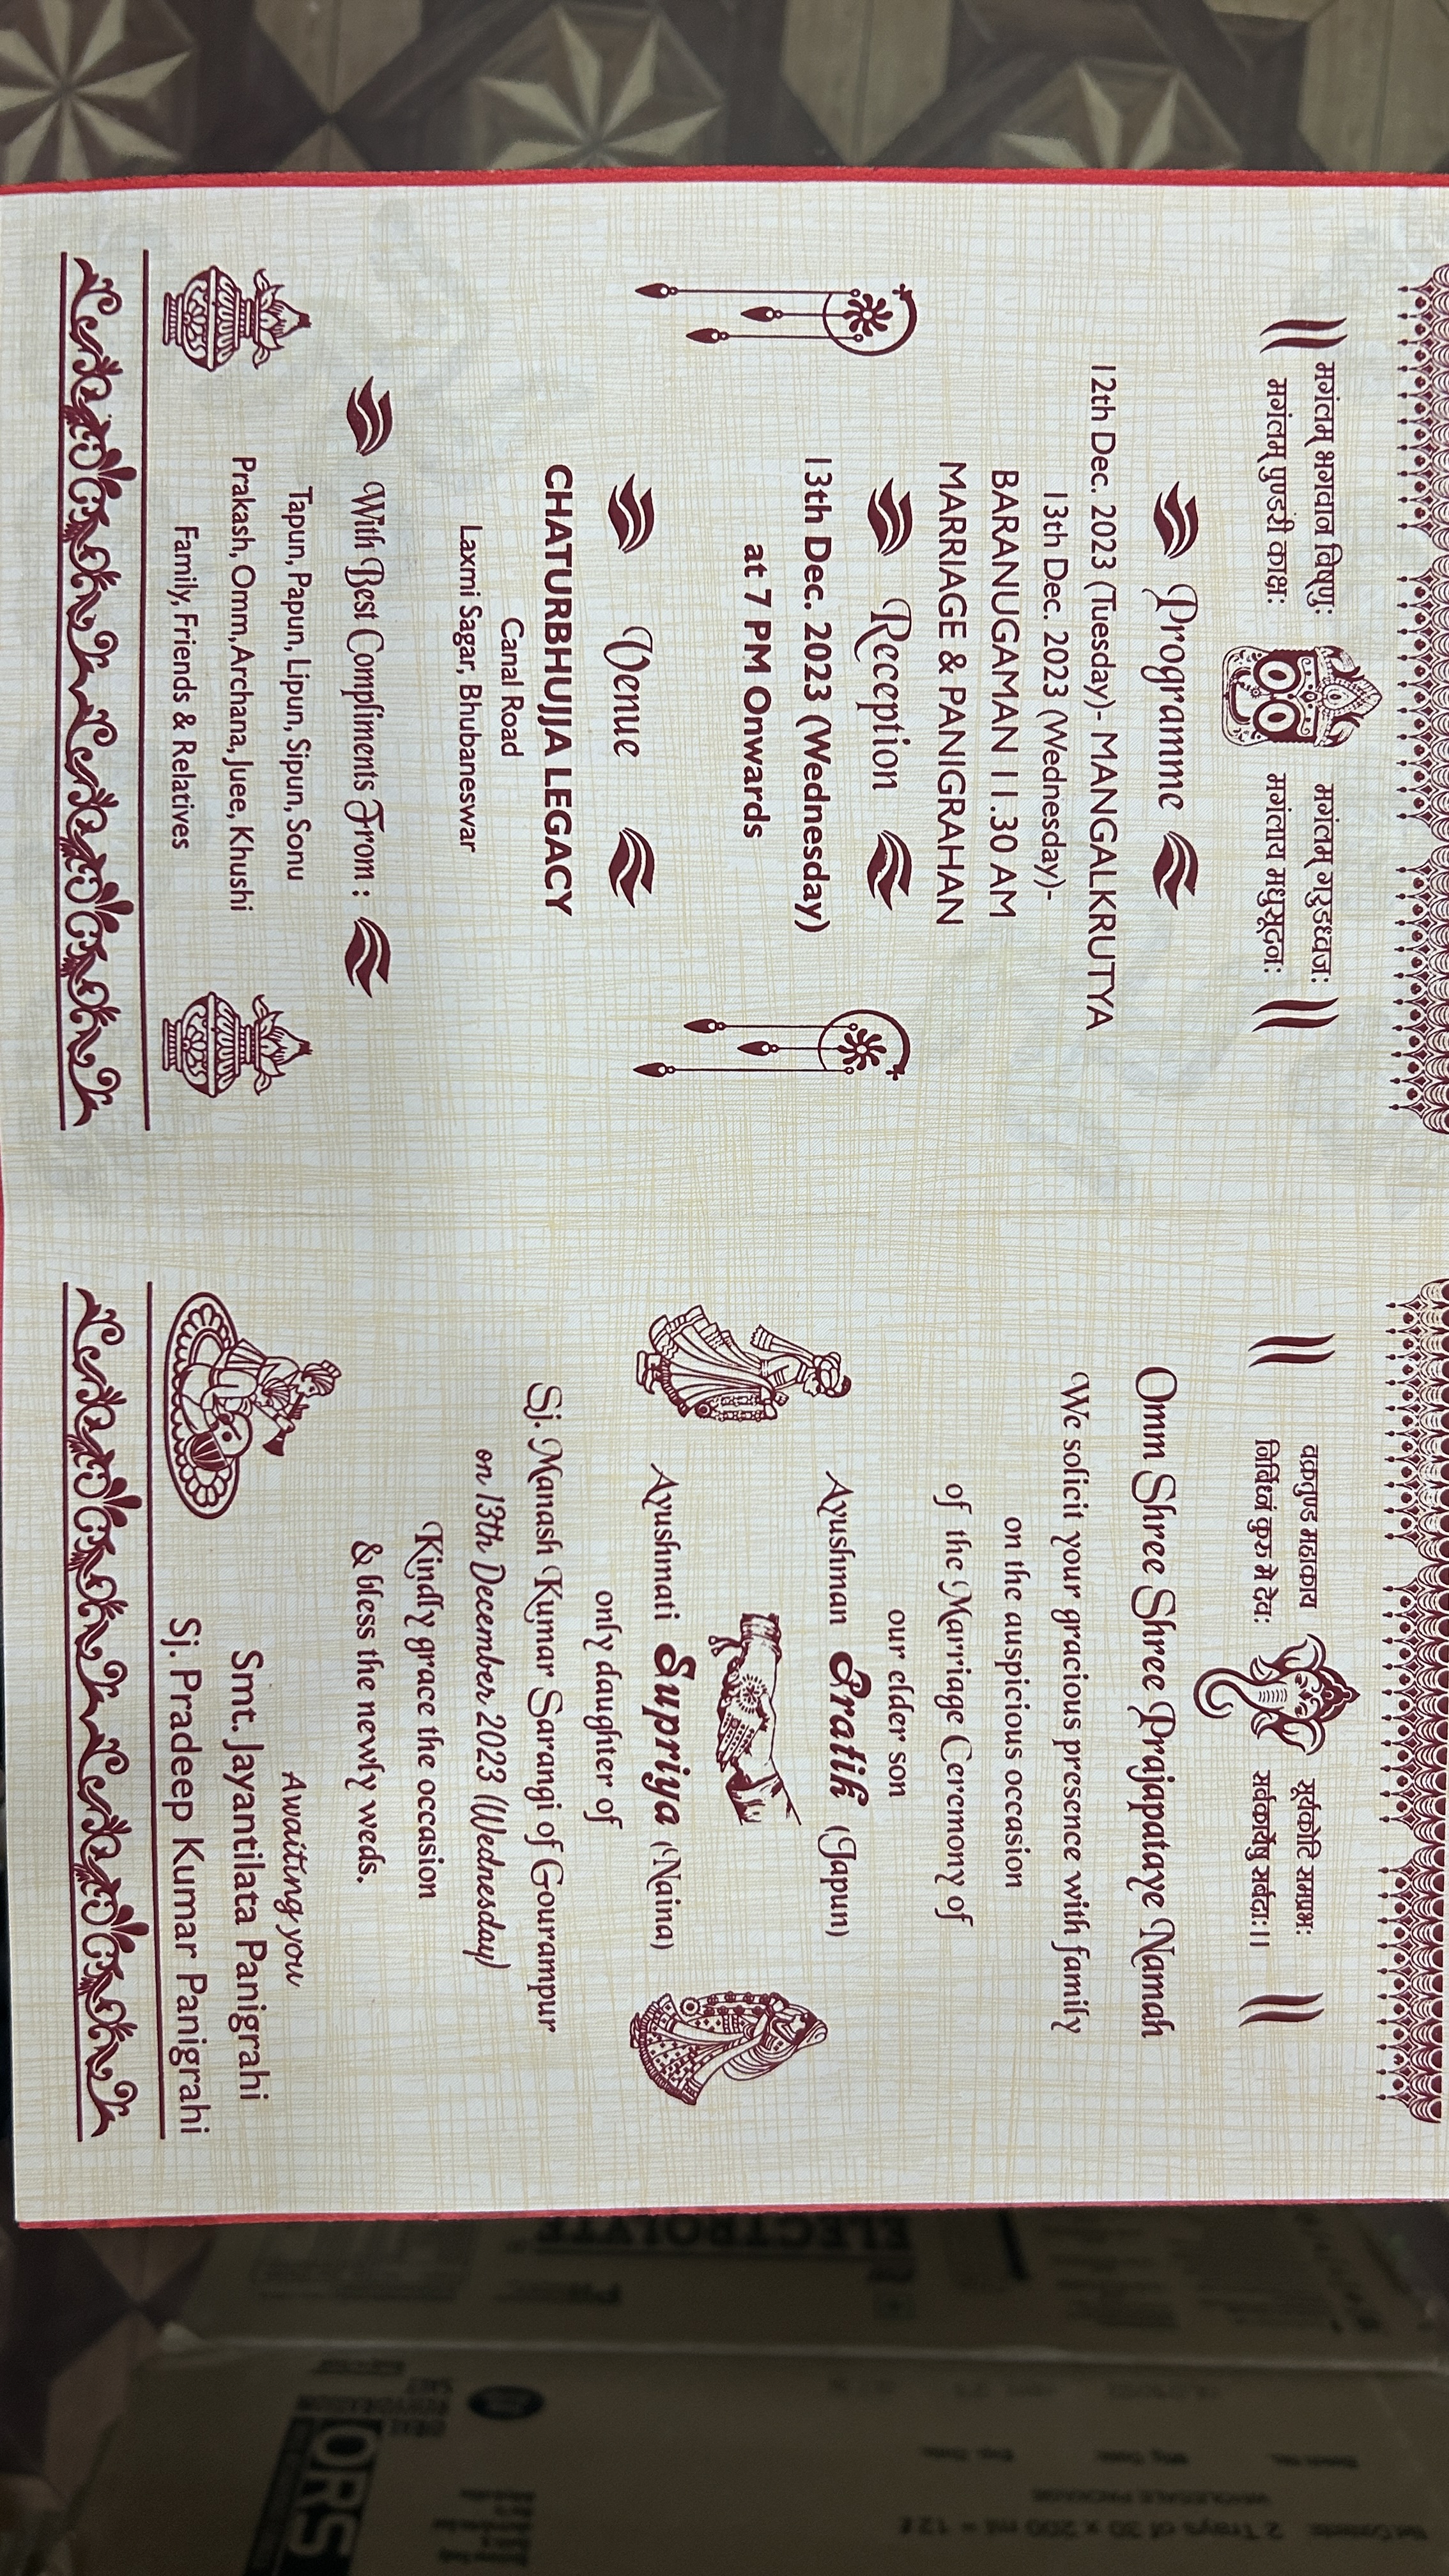 मगंलम् भगवान विष्णु:
मगंलम् गरुडध्वज:
मगंलम् पुण्डरी काक्ष:
मगंलाय मधुसूदन:
Programme
12th Dec. 2023 (Tuesday)- MANGALKRUTYA
13th Dec. 2023 (Wednesday)-
BARANUGAMAN 11.30 AM
MARRIAGE & PANIGRAHAN
Reception
13th Dec. 2023 (Wednesday)
at 7 PM Onwards
Venue
CHATURBHUJJA LEGACY
Canal Road
Laxmi Sagar, Bhubaneswar
With Best Compliments From :
Tapun, Papun, Lipun, Sipun, Sonu
Prakash, Omm, Archana, Juee, Khushi
Family, Friends & Relatives
वक्रतुण्ड महाकाय
सूर्यकोटि समप्रभ:
निर्विघ्नं कुरु मे देव:
सर्वकार्येषु सर्वदा:।।
Omm Shree Shree Prajapataye Namah
We solicit your gracious presence with family
on the auspicious occasion
of the Marriage Ceremony of
our elder son
Ayushman Pratik (Japun)
Ayushmati Supriya (Naina)
only daughter of
Sj. Manash Kumar Sarangi of Gourampur
on 13th December 2023 (Wednesday)
Kindly grace the occasion
& bless the newly weds.
Awaiting you
Smt. Jayantilata Panigrahi
Sj. Pradeep Kumar Panigrahi
ELECTROLYTE
ORS
WHOLESALE PACKAGE
2 Trays of 30 x 200 ml = 12 ℓ